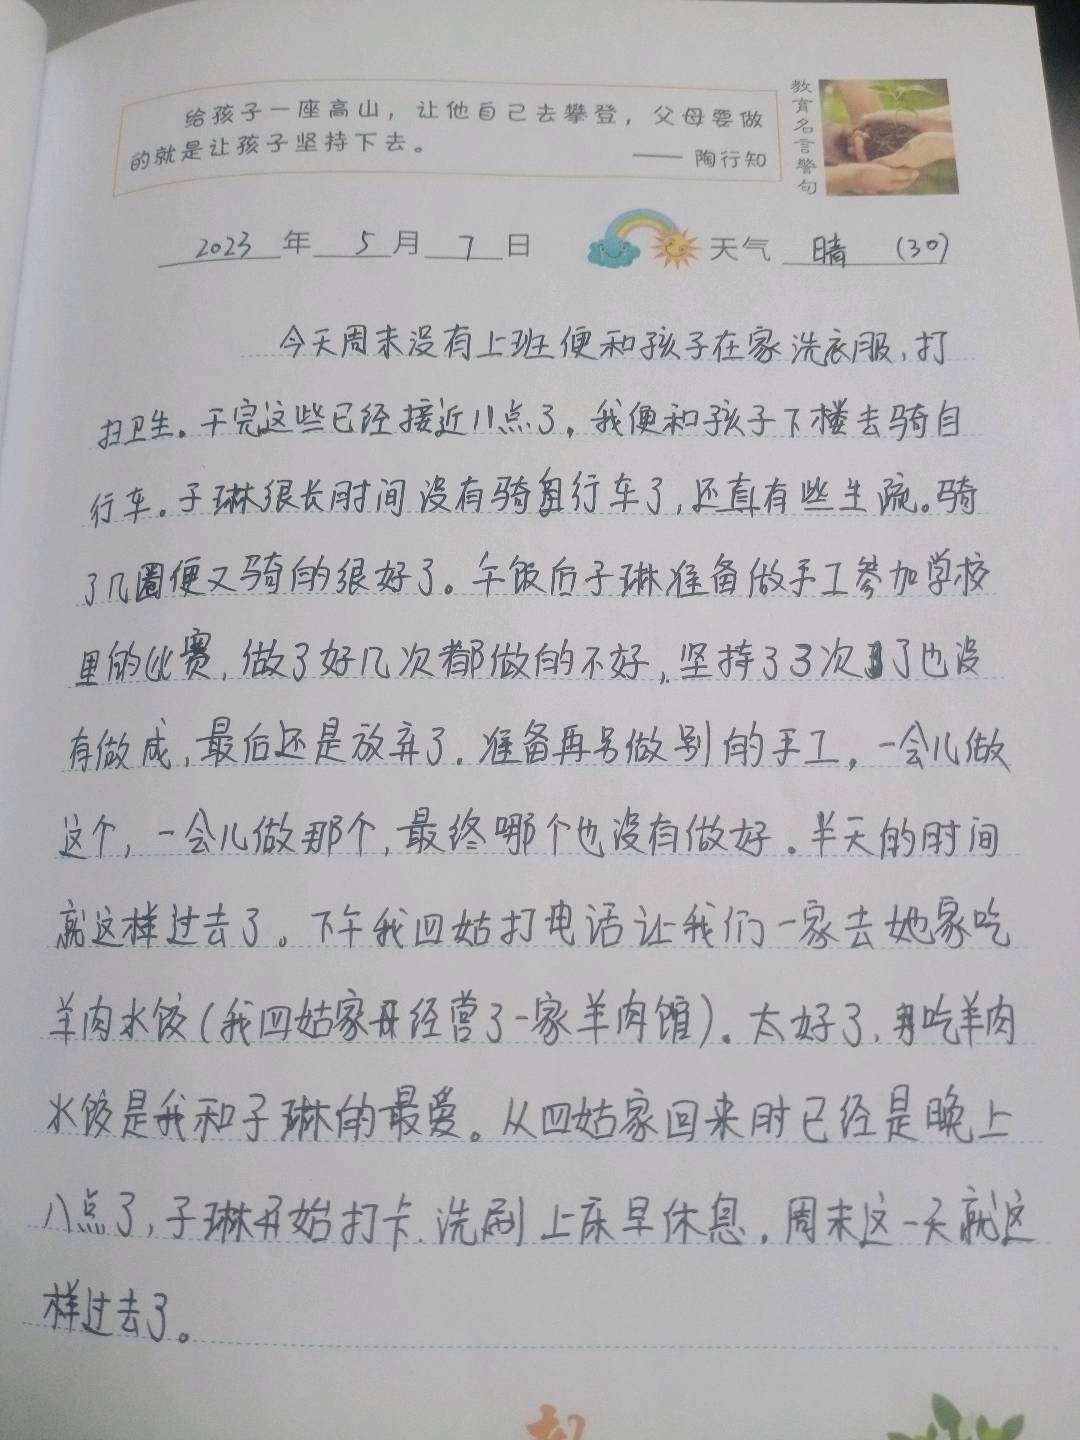 给孩子一座高山，让他自己去攀登，父母要做
的就是让孩子坚持下去。
—— 陶行知
教育名言警句
2023 年 5 月 7 日 天气 晴 (30)
今天周末没有上班便和孩子在家洗衣服,打
扫卫生。干完这些已经接近11点了。我便和孩子下楼去骑自
行车。子琳很长时间没有骑自行车了,还真有些生疏。骑
了几圈便又骑的很好了。午饭后子琳准备做手工参加学校
里的比赛,做了好几次都做的不好,坚持了3次了也没
有做成,最后还是放弃了。准备再另做别的手工。一会儿做
这个,一会儿做那个,最终哪个也没有做好。半天的时间
就这样过去了。下午我四姑打电话让我们一家去她家吃
羊肉水饺(我四姑家经营了一家羊肉馆)。太好了,吃羊肉
水饺是我和子琳的最爱。从四姑家回来时已经是晚上
八点了,子琳开始打卡.洗刷上床早休息。周末这一天就这
样过去了。